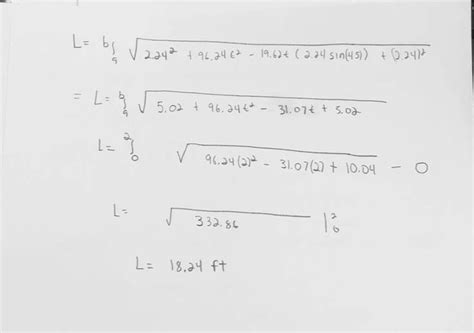 L= b∫a √2.24² + 96.24t² - 19.62t (2.24 sin(45)) + (2.24)²
= L= b∫a √5.02 + 96.24t² - 31.07t + 5.02
L= 2∫0 √96.24(2)² - 31.07(2) + 10.04 - 0
L= √332.86 |²₀
L= 18.24 ft